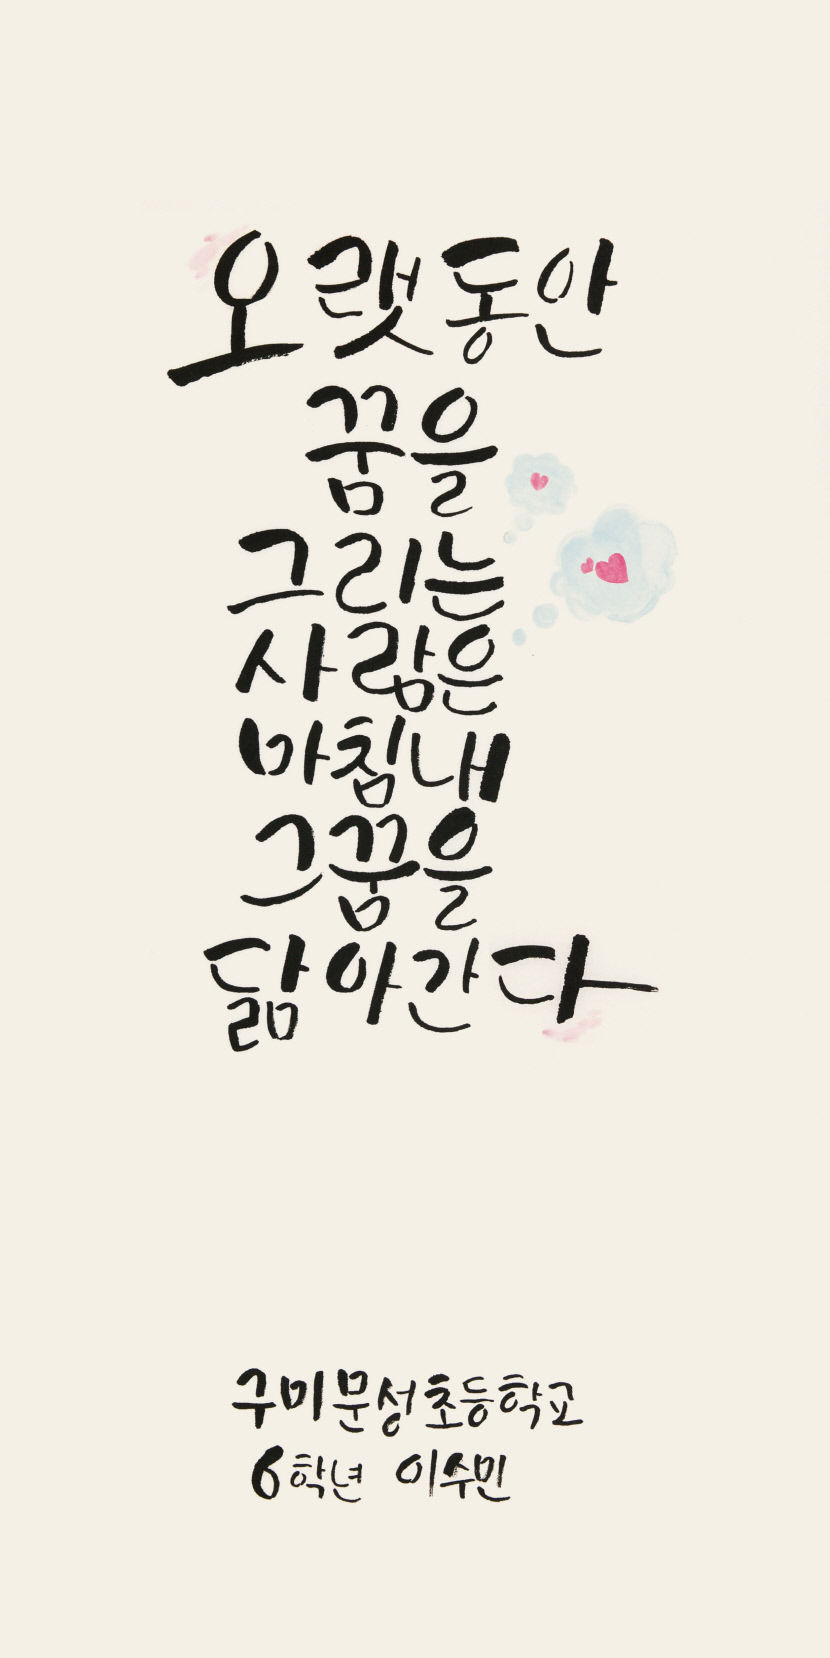 오랫동안
꿈을
그리는
사람은
마침내
그꿈을
닮아간다
구미문성초등학교
6학년 이수민